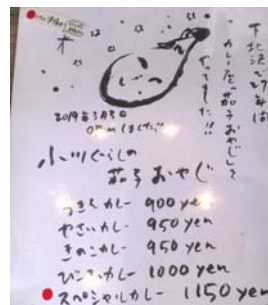 下北沢で27年間
カレー屋"茄子おやじ"を
やってました!!
2019年3月5日
openしました!!
小川ぐらしの
茄子おやじ
カレー 900 yen
やさいカレー 950 yen
きのこカレー 950 yen
カレー 1000 yen
スペシャルカレー 1150 yen